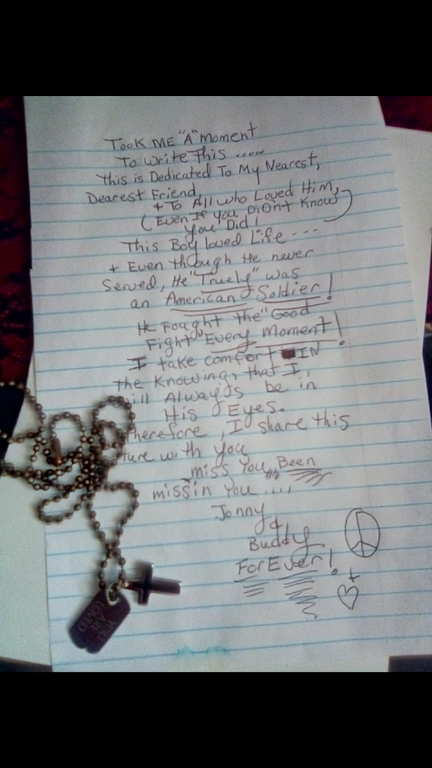 Took ME "A" Moment
To Write This .....
This is Dedicated To My Nearest,
Dearest Friend,
+ To All who Loved Him,
(Even If you Didnt Know
You Did!)
This Boy loved Life ---
+ Even though He never
Served, He "Truely" was
an American Soldier!
He Fought the "Good
Fight" Every Moment!
I take comfort IN
the Knowing, that I,
ill Always be in
His Eyes.
herefore, I share this
ture with you
miss You, Been
missin You ....
Jonny
&
Buddy
ForEver!
+